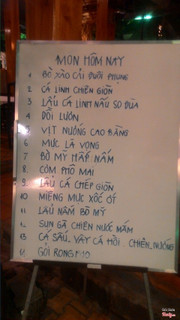 MÓN HÔM NAY
1 BÒ XÀO CẢI ĐUÔI PHỤNG
2 CÁ LINH CHIÊN GIÒN
3 LẨU CÁ LINH NẤU SO ĐŨA
4 DỒI LƯƠN
5 VỊT NƯỚNG CAO BẰNG
6 MỰC LÁ VỌNG
7 BÒ MỸ HẤP NẤM
8 CỐM PHÔ MAI
9 LẨU CÁ CHÉP GIÒN
10 MIẾNG MỰC XỐC ỚT
11 LẨU NẤM BÒ MỸ
12 SỤN GÀ CHIÊN NƯỚC MẮM
13 CÁ SẤU, VÂY CÁ HỒI CHIÊN, NƯỚNG
GỎI RONG